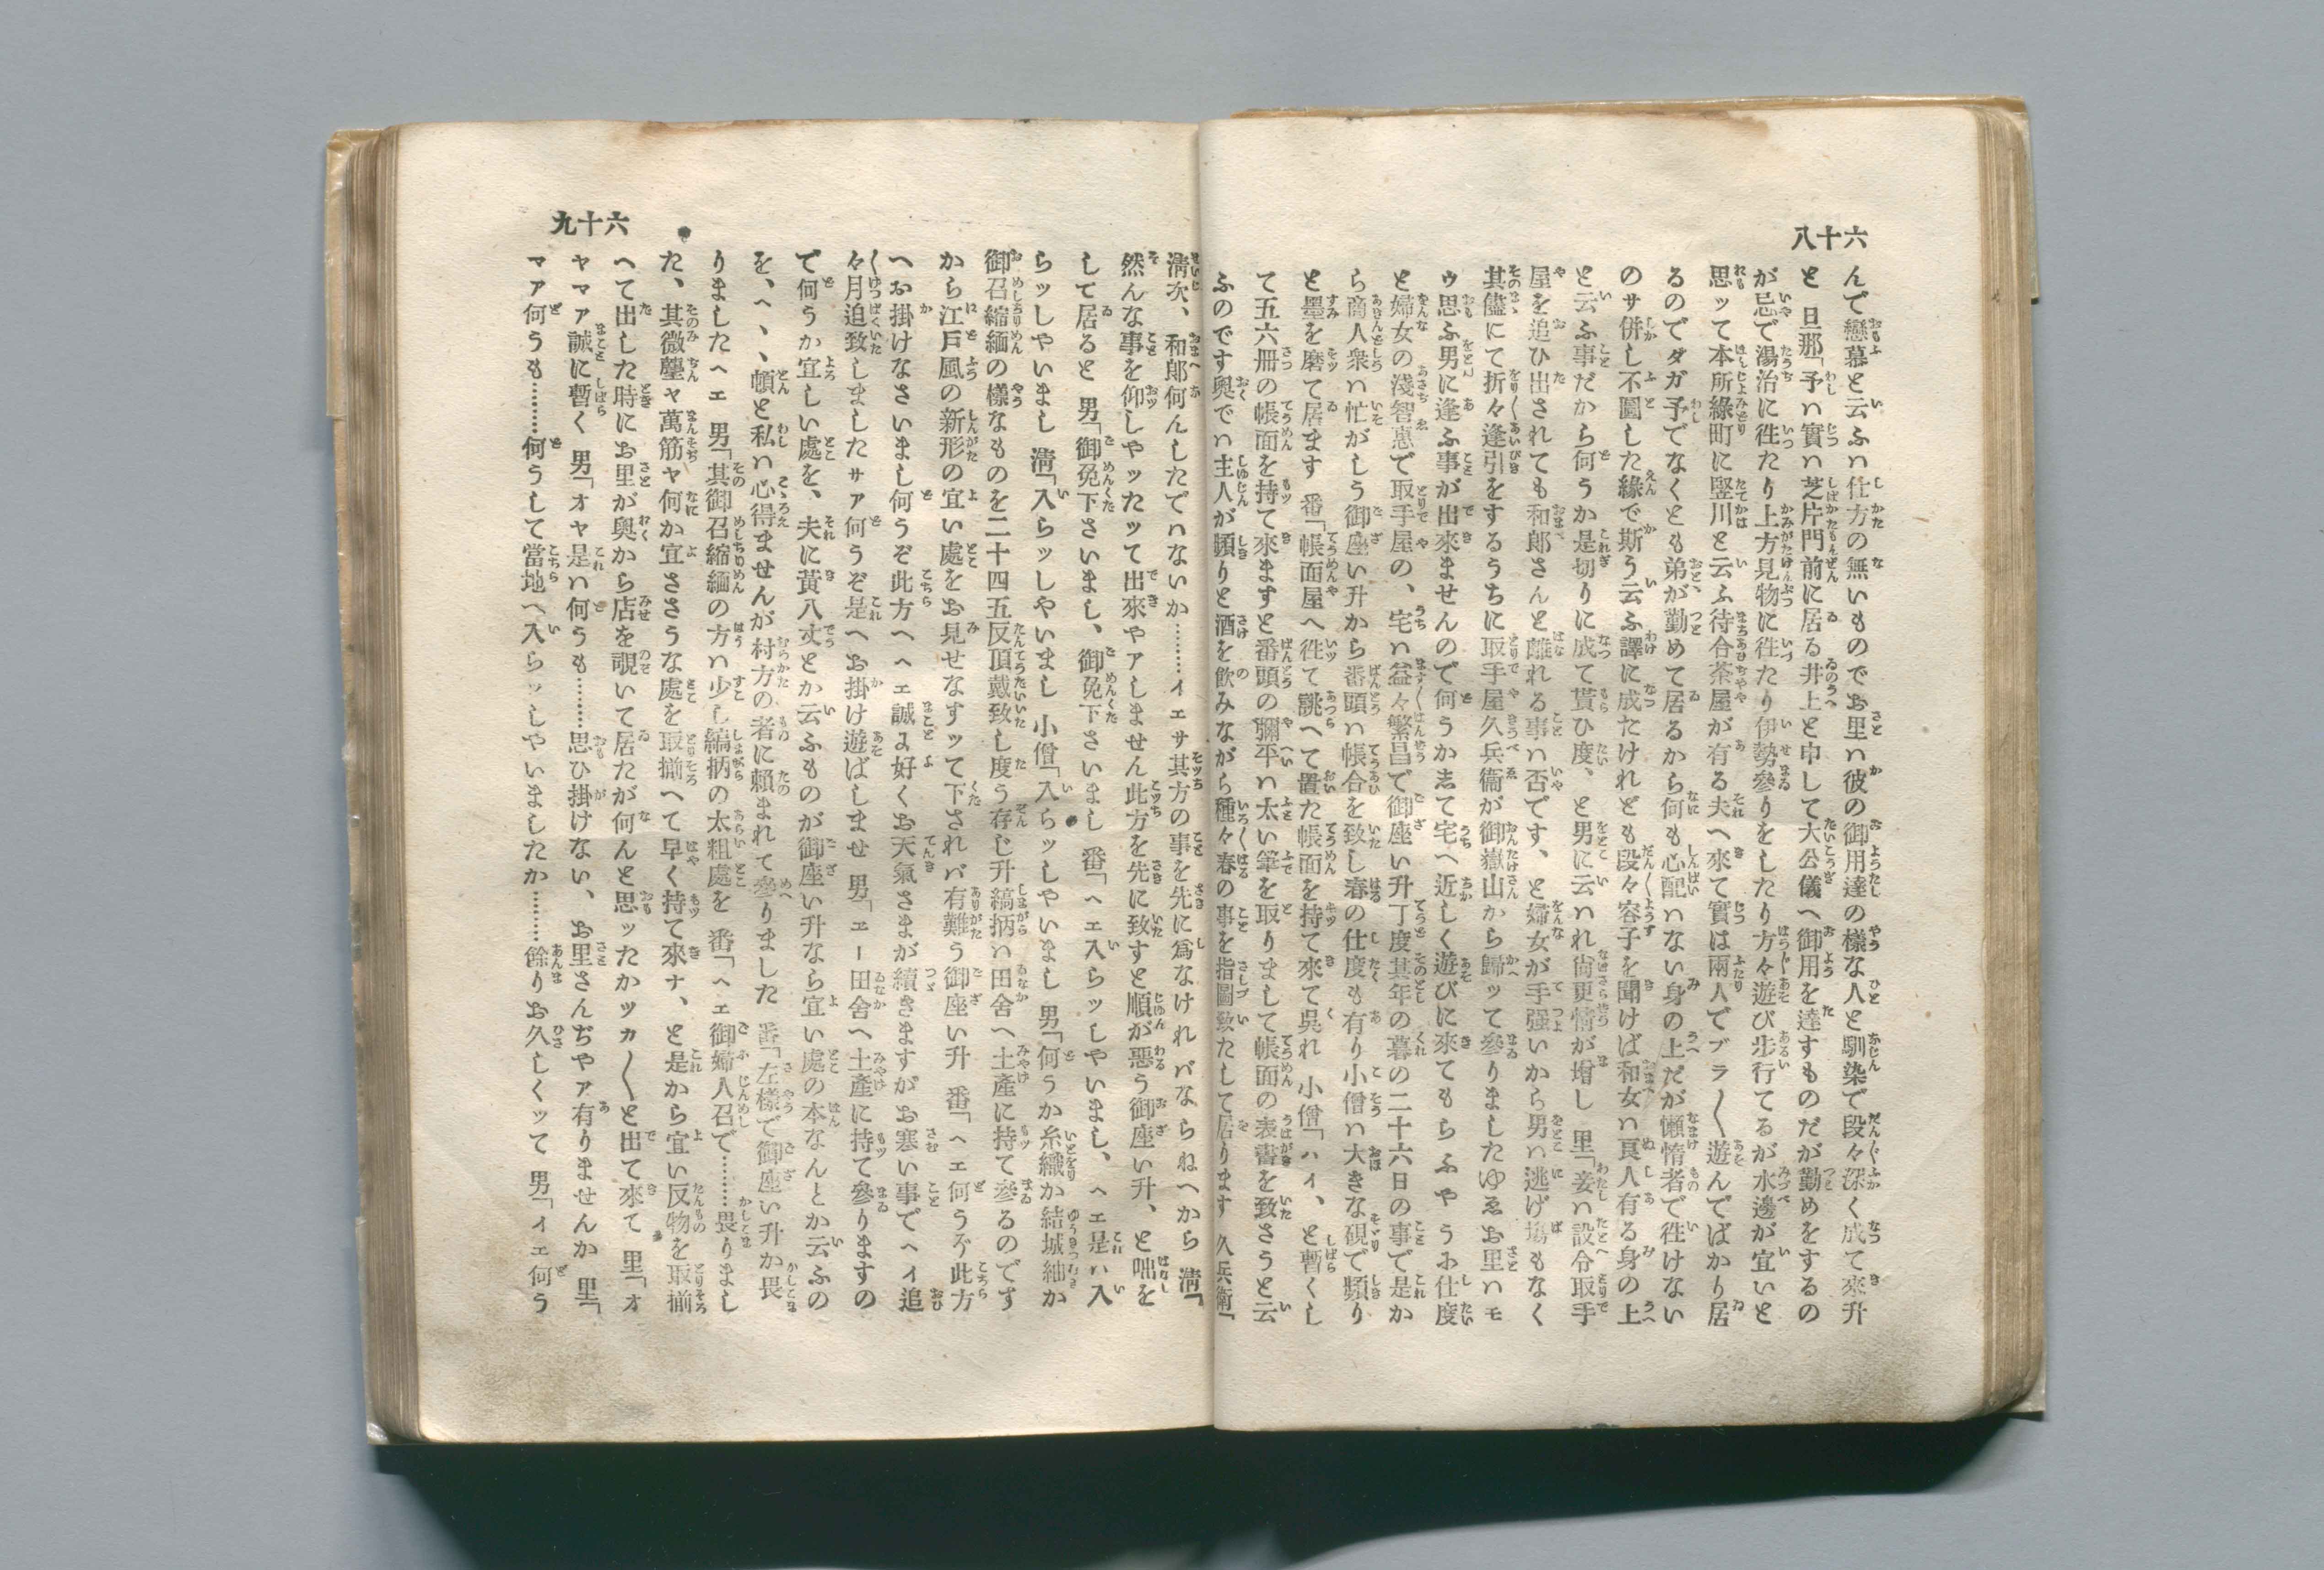 六十八
んで戀慕と云ふハ仕方の無いものでお里ハ彼の御用達の樣な人と馴染で段々深く成て來升
と 旦那「予ハ實ハ芝片門前に居る井上と申して大公儀へ御用を達すものだが勤めをするの
が忌で湯治に徃たり上方見物に徃たり伊勢參りをしたり方々遊び歩行てるが水邊が宜いと
思ッて本所綠町に竪川と云ふ待合茶屋が有る夫へ來て實は兩人でブラ〱遊んでばかり居
るのでダガ予でなくとも弟が勤めて居るから何も心配ハない身の上だが懶惰者で徃けない
のサ併し不圖した緣で斯う云ふ譯に成たけれども段々容子を聞けば和女ハ良人有る身の上
と云ふ事だから何うか是切りに成て貰ひ度、と男に云ハれ尙更情が增し 里「妾ハ設令取手
屋を追ひ出されても和郎さんと離れる事ハ否です、と婦女が手强いから男ハ逃げ塲もなく
其儘にて折々逢引をするうちに取手屋久兵衞が御嶽山から歸ッて參りましたゆゑお里ハモ
ゥ思ふ男に逢ふ事が出來ませんので何うか志て宅へ近しく遊びに來てもらふやうふ仕度
と婦女の淺智惠で取手屋の、宅ハ益々繁昌で御座い升丁度其年の暮の二十六日の事で是か
ら商人衆ハ忙がしう御座い升から番頭ハ帳合を致し春の仕度も有り小僧ハ大きな硯で頻り
と墨を磨て居ます 番「帳面屋へ徃て誂へて置た帳面を持て來て吳れ 小僧「ハィ、と暫くし
て五六冊の帳面を持て來ますと番頭の彌平ハ太い筆を取りまして帳面の表書を致さうと云
ふのです奧でハ主人が頻りと酒を飮みながら種々春の事を指圖致たして居ります 久兵衞「
六十九
淸次、和郎何んしたでハないか………イェサ其方の事を先に爲なけれバならねへから 淸「
然んな事を仰しやッたッて出來やアしません此方を先に致すと順が惡う御座い升、と咄を
して居ると 男「御免下さいまし、御免下さいまし 番「ヘェ入らッしやいまし、ヘェ是ハ入
らッしやいまし 淸「入らッしやいまし 小僧「入らッしやいまし 男「何うか糸織か結城紬か
御召縮緬の樣なものを二十四五反頂戴致し度う存じ升縞柄ハ田舍へ土產に持て參るのです
から江戸風の新形の宜い處をお見せなすッて下されバ有難う御座い升 番「ヘェ何うぞ此方
へお掛けなさいまし何うぞ此方へヘェ誠ɪ好くお天氣さまが續きますがお寒い事でヘイ追
々月追致しましたサァ何うぞ是へお掛け遊ばしませ 男「ェー田舍へ土產に持て參りますの
で何うか宜しい處を、夫に黃八丈とか云ふものが御座い升なら宜い處の本なんとか云ふの
を、ヘ、、頓と私ハ心得ませんが村方の者に賴まれて參りました 番「左樣で御座い升か畏
りましたヘェ 男「其御召縮緬の方ハ少し縞柄の太粗處を 番「ヘェ御婦人召で………畏りまし
た、其微塵ヤ萬筋ヤ何か宜ささうな處を取揃へて早く持て來ナ、と是から宜い反物を取揃
へて出した時にお里が奧から店を覗いて居たが何んと思ッたかッカ〱と出て來て 里「オ
ヤマァ誠に暫く 男「オヤ是ハ何うも………思ひ掛けない、お里さんぢやア有りませんか 里「
マァ何うも………何うして當地へ入らッしやいましたか………餘りお久しくッて 男「ィェ何う